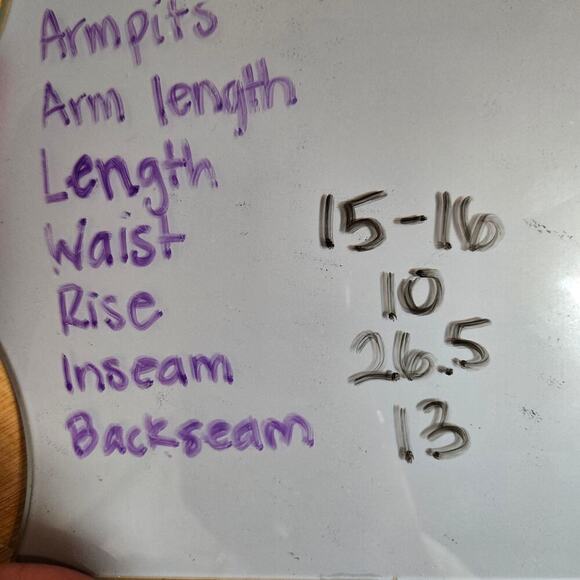 Armpits
Arm length
Length
Waist 15-16
Rise 10
Inseam 26.5
Backseam 13